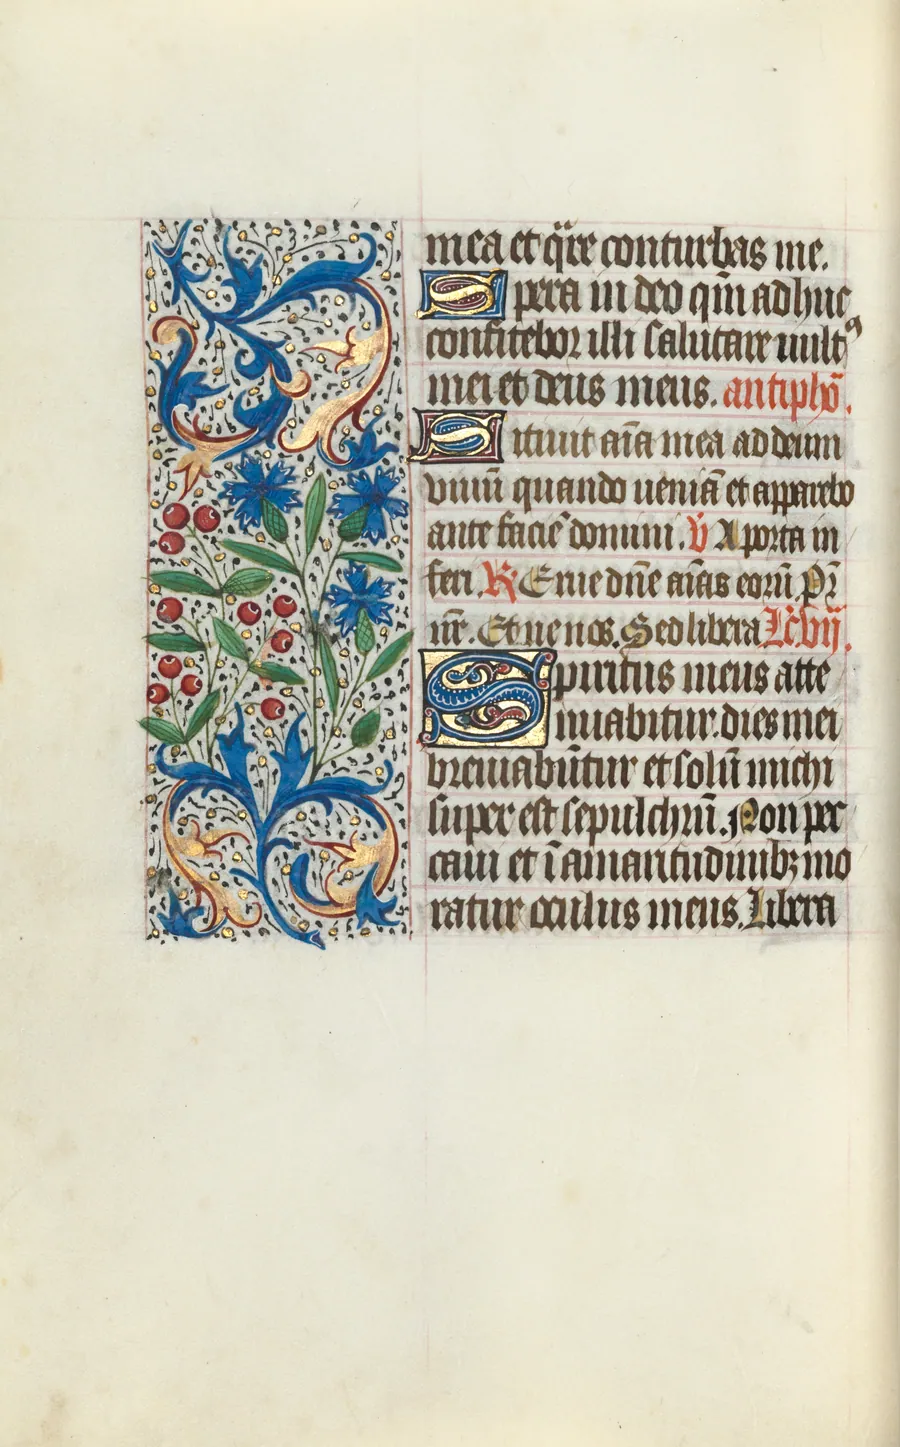 mea et q̄re conturbas me.
Spera in deo qm̄ adhuc
confitebor illi salutare vultꝰ
mei et deus meus. antiphō.
Sitiuit aīa mea ad deum
viuū quando ueniā et apparebo
ante faciē domini. V̄ A porta in
feri. R Erue dn̄e aīas eorū. Pr̄
nr̄. Et ne nos. Sed libera Lc̄ vij.
Spiritus meus atte
nuabitur. dies mei
breuiabūtur et solū michi
super est sepulchrū. Non pec
caui et ī amaritudinibꝫ mo
ratur oculus meus. Libera